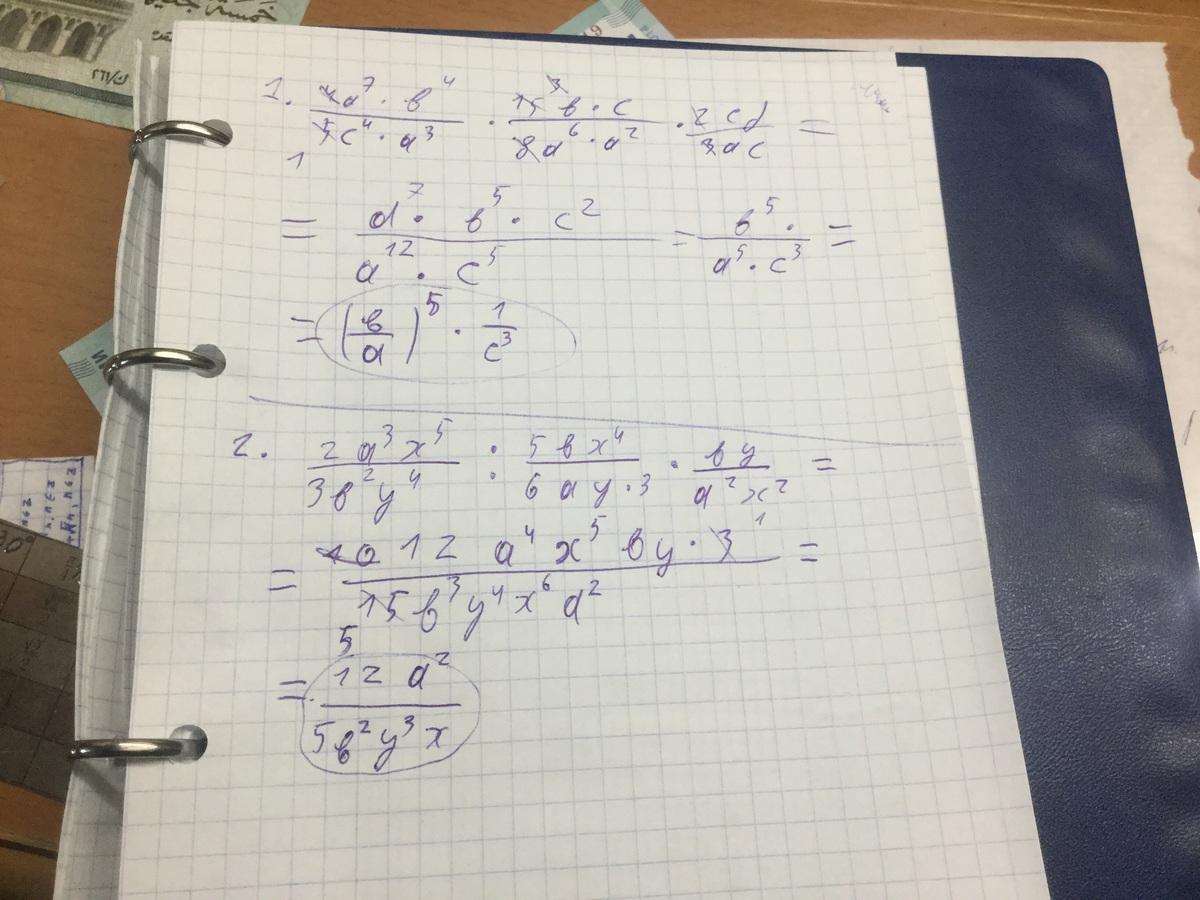 1. 4a⁷ · в⁴ / 5c⁴ · a³ · 15 3 в · c / 8a⁶ · a² · 2cd / 3ac =
1
= a⁷ · в⁵ · c² / a¹² · c⁵ = в⁵ · / a⁵ · c³ =
= (в/a)⁵ · 1/c³
2. 2a³x⁵ / 3в²y⁴ : 5вx⁴ / 6ay·3 · вy / a²x² =
= 12 a⁴ x⁵ вy · 3 1 / 15в³y⁴x⁶a² =
5
= 12 a² / 5в²y³x